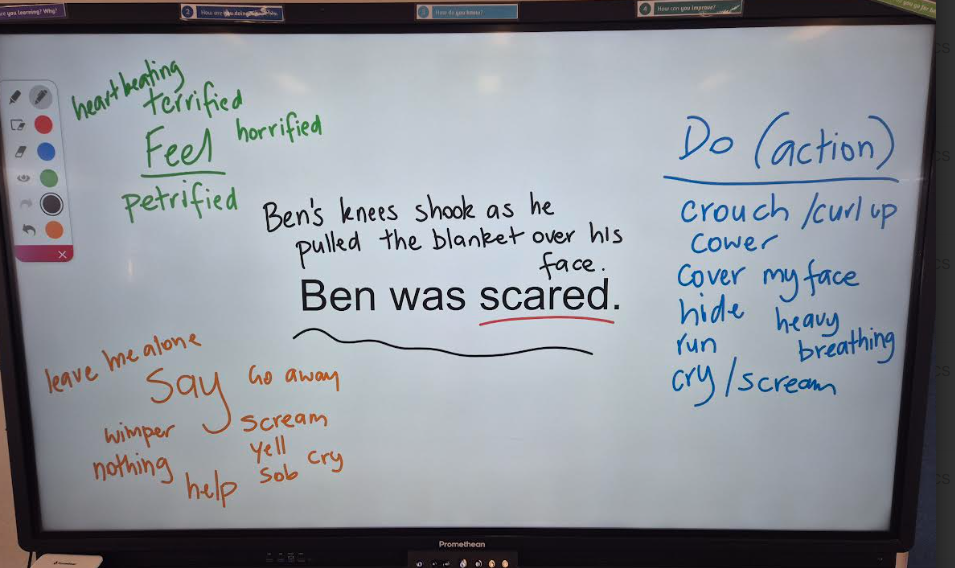 are you learning? Why?
How do you know?
How can you improve?
heart beating
terrified
Feel
horrified
petrified
Do (action)
crouch / curl up
cower
cover my face
hide
heavy
run
breathing
cry / scream
Ben's knees shook as he
pulled the blanket over his
face.
Ben was scared.
leave me alone
Say
Go away
wimper
scream
nothing
yell
help
sob
cry
Promethean